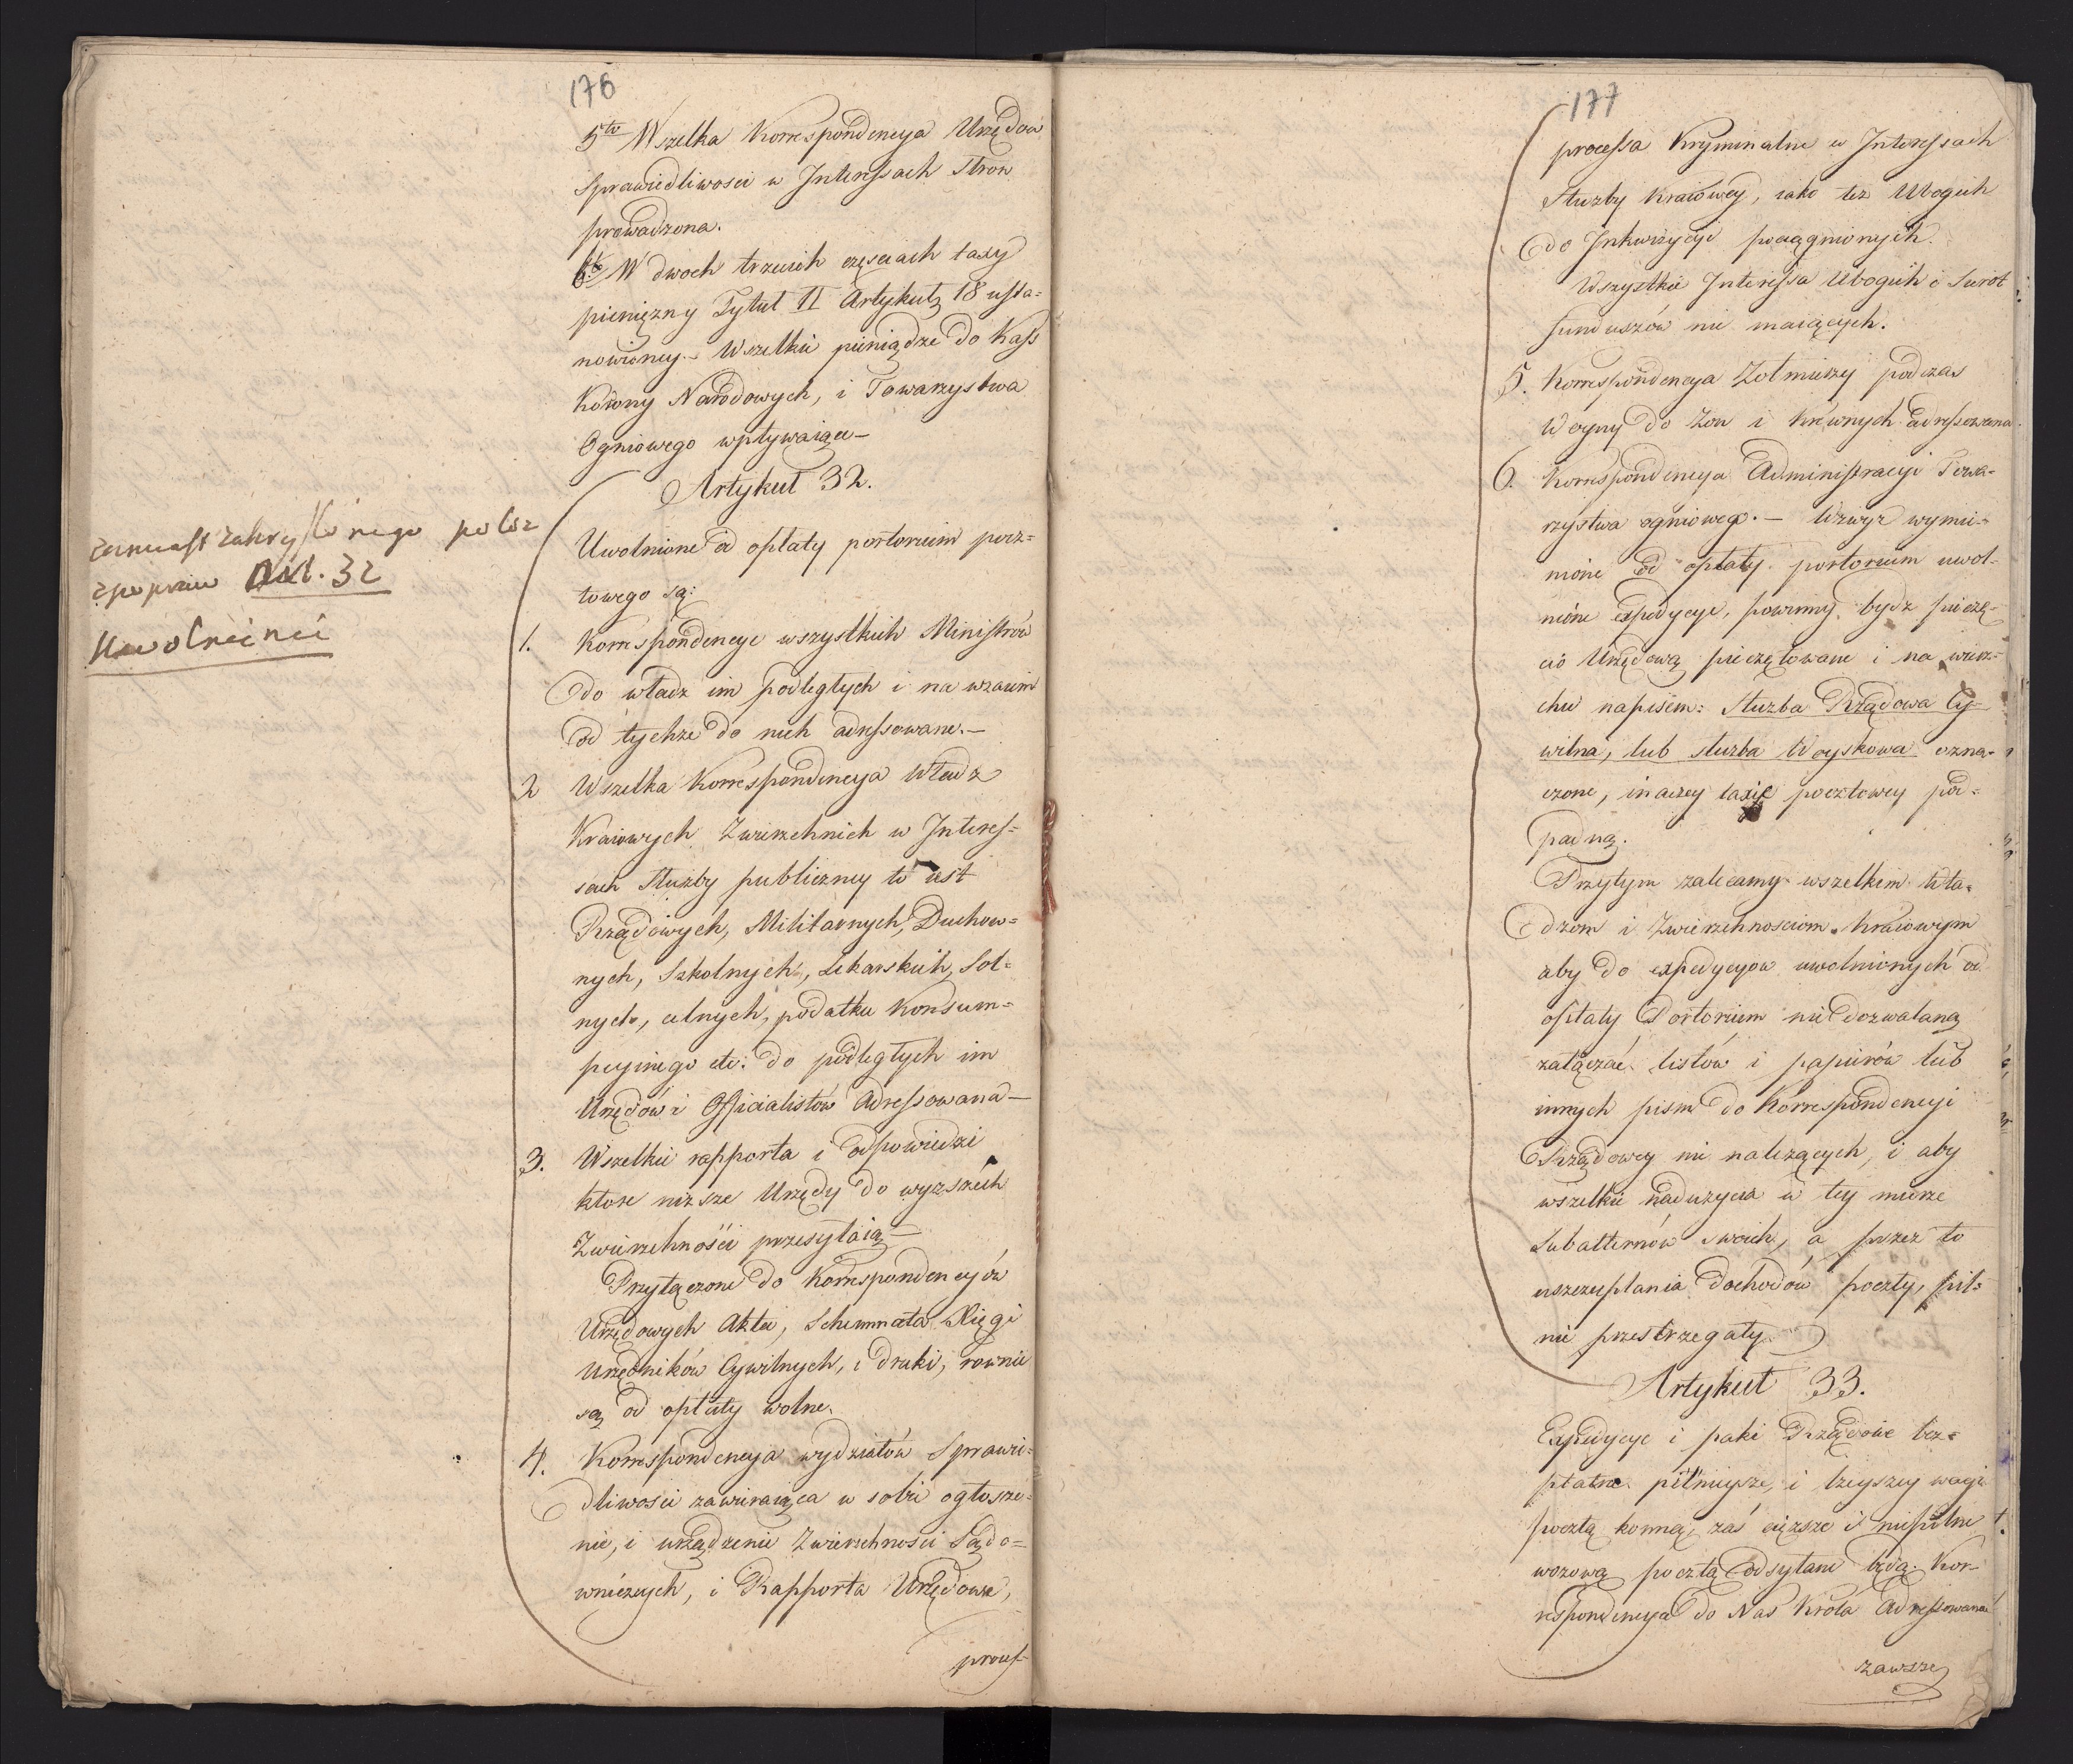 176
5to Wszelka Korrespondencya Urzędów
Sprawiedliwosci w Interessach stron
prowadzona.
6to W dwoch trzecich częsciach taxy
pieniężny Tytuł II Artykułą 18 usta-
nowioney. Wszelkie pieniądze do Kass
Korony Narodowych, i Towarzystwa
Ogniowego wpływaiące—
Artykuł 32.
zamiast zakryslonego
popraw Art. 32
Uwolnieni
Uwolnione od opłaty portorium pocz=
towego są:
1. Korrespondencye wszystkich Ministrów
do władz im podległych i na wzaiem
od tychże do nich adressowane.—
2 Wszelka Korrespondencya Władz
Kraiowych Zwierzchnich w Interes=
sach Służby publiczney to iest
Rządowych, Militarnych, Duchow=
nych, Szkolnych, Lekarskich, Sol=
nych, celnych, podatku Konsum=
pcyinego etc: do podległych im
Urzędów i Officialistów Adressowana—
3. Wszelkie rapporta i odpowiedzi
ktore niższe Urzędy do wyższech
Zwierzchności przesyłaią—
Przyłączone do Korrespondencyów
Urzędowych Akta, Schemmata Xięgi
Urzędników Cywilnych, i druki, rownie
są od opłaty wolne.
4. Korrespondencya wydziałów Sprawie=
dliwosci zawieraiąca w sobie ogłosze=
nie, i urządzenie Zwierzchnosci Sądo=
wniczych, i Rapporta Urzędowe,
process-
177
processa Kryminalne w Interessach
Służby kraiowey, iako też Ubogich
do Inkwizycyi pociągnionych.
Wszystkie Interessa Ubogich i Sierot
funduszów nie maiących.
5. Korrespondencya Zołnierzy podczas
Woyny do Zon i krewnych adressowana
6. Korrespondencya Administracyi Towa-
rzystwa ogniowego.— Wzwyz wymie-
nione od opłaty portorium uwol-
nione expedycye, powinny bydz pieczę-
cią Urzędową pieczętowane i na wierz-
chu napisem: Służba Rządowa Cy-
wilna, lub służba Woyskowa ozna-
czone, inaczey taxie pocztowey pod=
padną.
Przytym zalecamy wszelkim Wła=
dzom i Zwierzchnosciom Kraiowym
aby do expedycyow uwolnionych od
opłaty Portorium nie dozwalaną
załączać listów i papierów lub
innych pism do Korrespondencyi
Rządowey nie należących, i aby
wszelkie nadużycia w tey mierze
Subalternów swoich, a przez to
uszczuplania dochodów poczty, pil=
nie przestrzegały.
Artykuł 33.
Expedycye i paki Rządowe bez=
płatne pilnieysze, i lżeyszey wagi
pocztą konną, zaś cięższe i niepilne
wozową pocztą odsyłane będą. Kor-
respondencya do Nas Króla Adressowana
zawsze